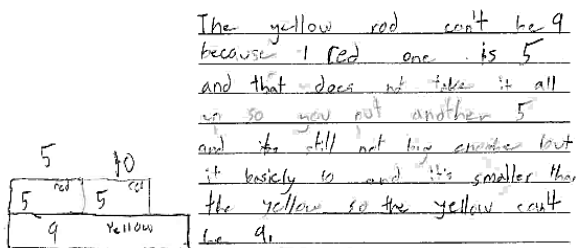 The yellow rod can't be 9
because 1 red one is 5
and that does not take it all
up so you put another 5
and its still not big enough but
it basicly 10 and it's smaller than
the yellow so the yellow can't
be 9.
5 10
red red
5 5
9 Yellow